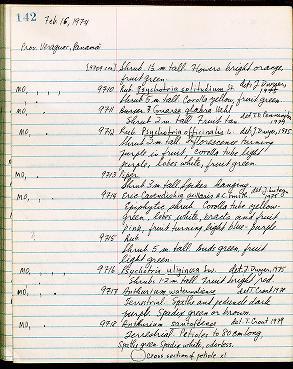 142 Feb. 16, 1974
Prov. Veraguas, Panamá
Shrub 1½ m tall. Flowers bright orange,
fruit green.
MO, 9710 Rub. Psychotria solitudinum St. det. J. Dwyer, 1975
Shrub 5 m tall. Corolla yellow, fruit green
MO, 9711 Guarea glabra Vahl
Shrub 2 m tall. Fruit tan
MO, 9712 Rub. Psychotria officinalis det. J. Dwyer, 1975
Shrub 2 m tall. Inflorescence turning
purple in fruit, corolla tube light
purple, lobes white, fruit green.
9713 Piper
Shrub 3 m tall. Spikes hanging.
MO, 9714 Eric. Cavendishia A.C. Smith det. J. Luteyn
Epiphytic shrub. Corolla tube yellow
green, lobes white, bracts and fruit
pink, fruit turning light blue-purple
9715 Rub.
Shrub 5 m tall. Buds green, fruit
light green.
MO, 9716 Psychotria uliginosa Sw. det. J. Dwyer, 1975
Shrub 1½ m tall. Fruit bright red.
MO, 9717 Anthurium det. T. Croat 1979
Terrestrial. Spathe and peduncle dark
purple. Spadix green or brown.
MO, 9718 Anthurium det. T. Croat 1979
Terrestrial. Petioles to 80 cm long
Spathe green. Spadix white, odorless.
cross section of petiole x1